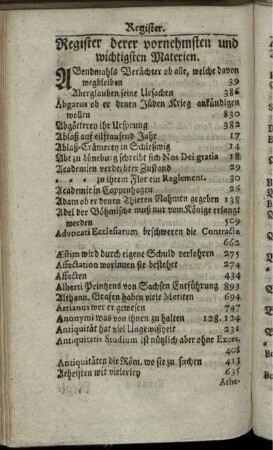 Register.
Register derer vornehmsten und
wichtigsten Materien.
ABendmahls Verächter ob alle, welche davon
wegbleiben 39
Aberglauben seine Ursachen 386
Abgarus ob er denen Jüden Krieg ankündigen
wollen 830
Abgötterey ihr Ursprung 382
Ablaß auf eilftausend Jahr 17
Ablaß-Crämerey in Schleßwig 14
Abt zu Lüneburg schreibt sich Nos Dei gratia 18
Academien verderbter Zustand 29
zu ihrem Flor ein Reglement. 30
Academie in Coppenhagen 26
Adam ob er denen Thieren Nahmen gegeben 138
Adel der Böhmische muß nur vom Könige erlangt
werden 509
Advocati Ecclesiarum beschweren die Contracte
662
Æstim wird durch eigene Schuld verlohren 275
Affectation worinnen sie bestehet 274
Affecten 434
Alberti Printzens von Sachsen Entführung 893
Althann, Grafen haben viele Meriten 694
Arrianus wer er gewesen 747
Anonymi was von ihnen zu halten 128. 124
Antiquität hat viel Ungewißheit 231
Antiquitatis Studium ist nützlich aber ohne Exces,
408
Antiquitäten die Röm. wo sie zu suchen 413
Atheisten wie vielerley 635
Athe-